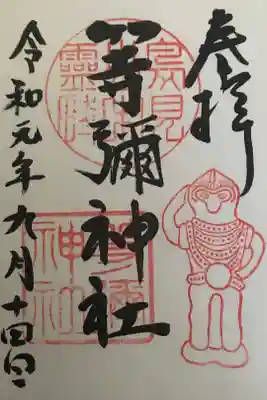 奉拝
鳥見
靈畤
等彌神社
等彌
神社
令和元年九月十四日